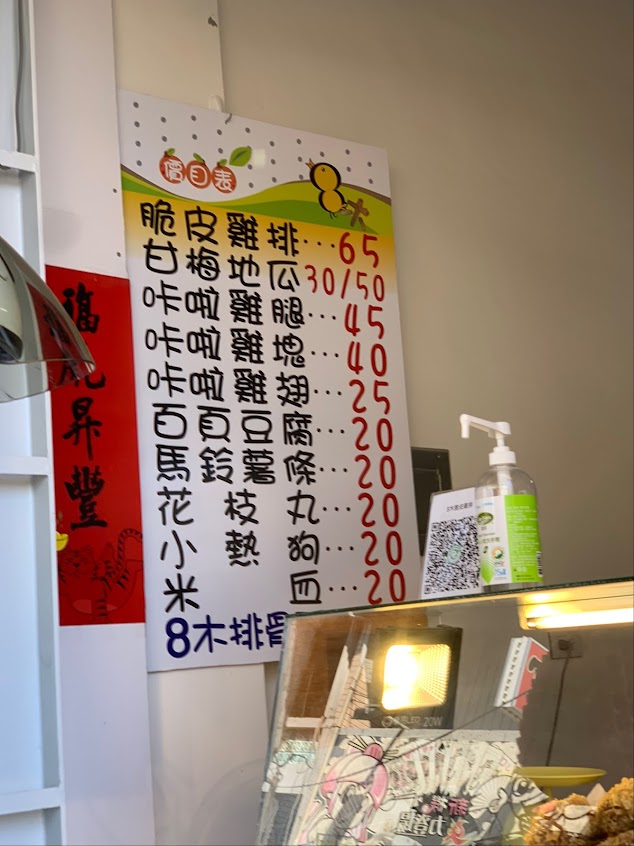 價目表
8木
脆皮雞排···65
甘梅地瓜30/50
咔啦雞腿···45
咔啦雞塊···40
咔啦雞翅···25
百頁豆腐···20
馬鈴薯條···20
花枝丸···20
小熱狗···20
米血···20
8木排骨
昇豐
20W